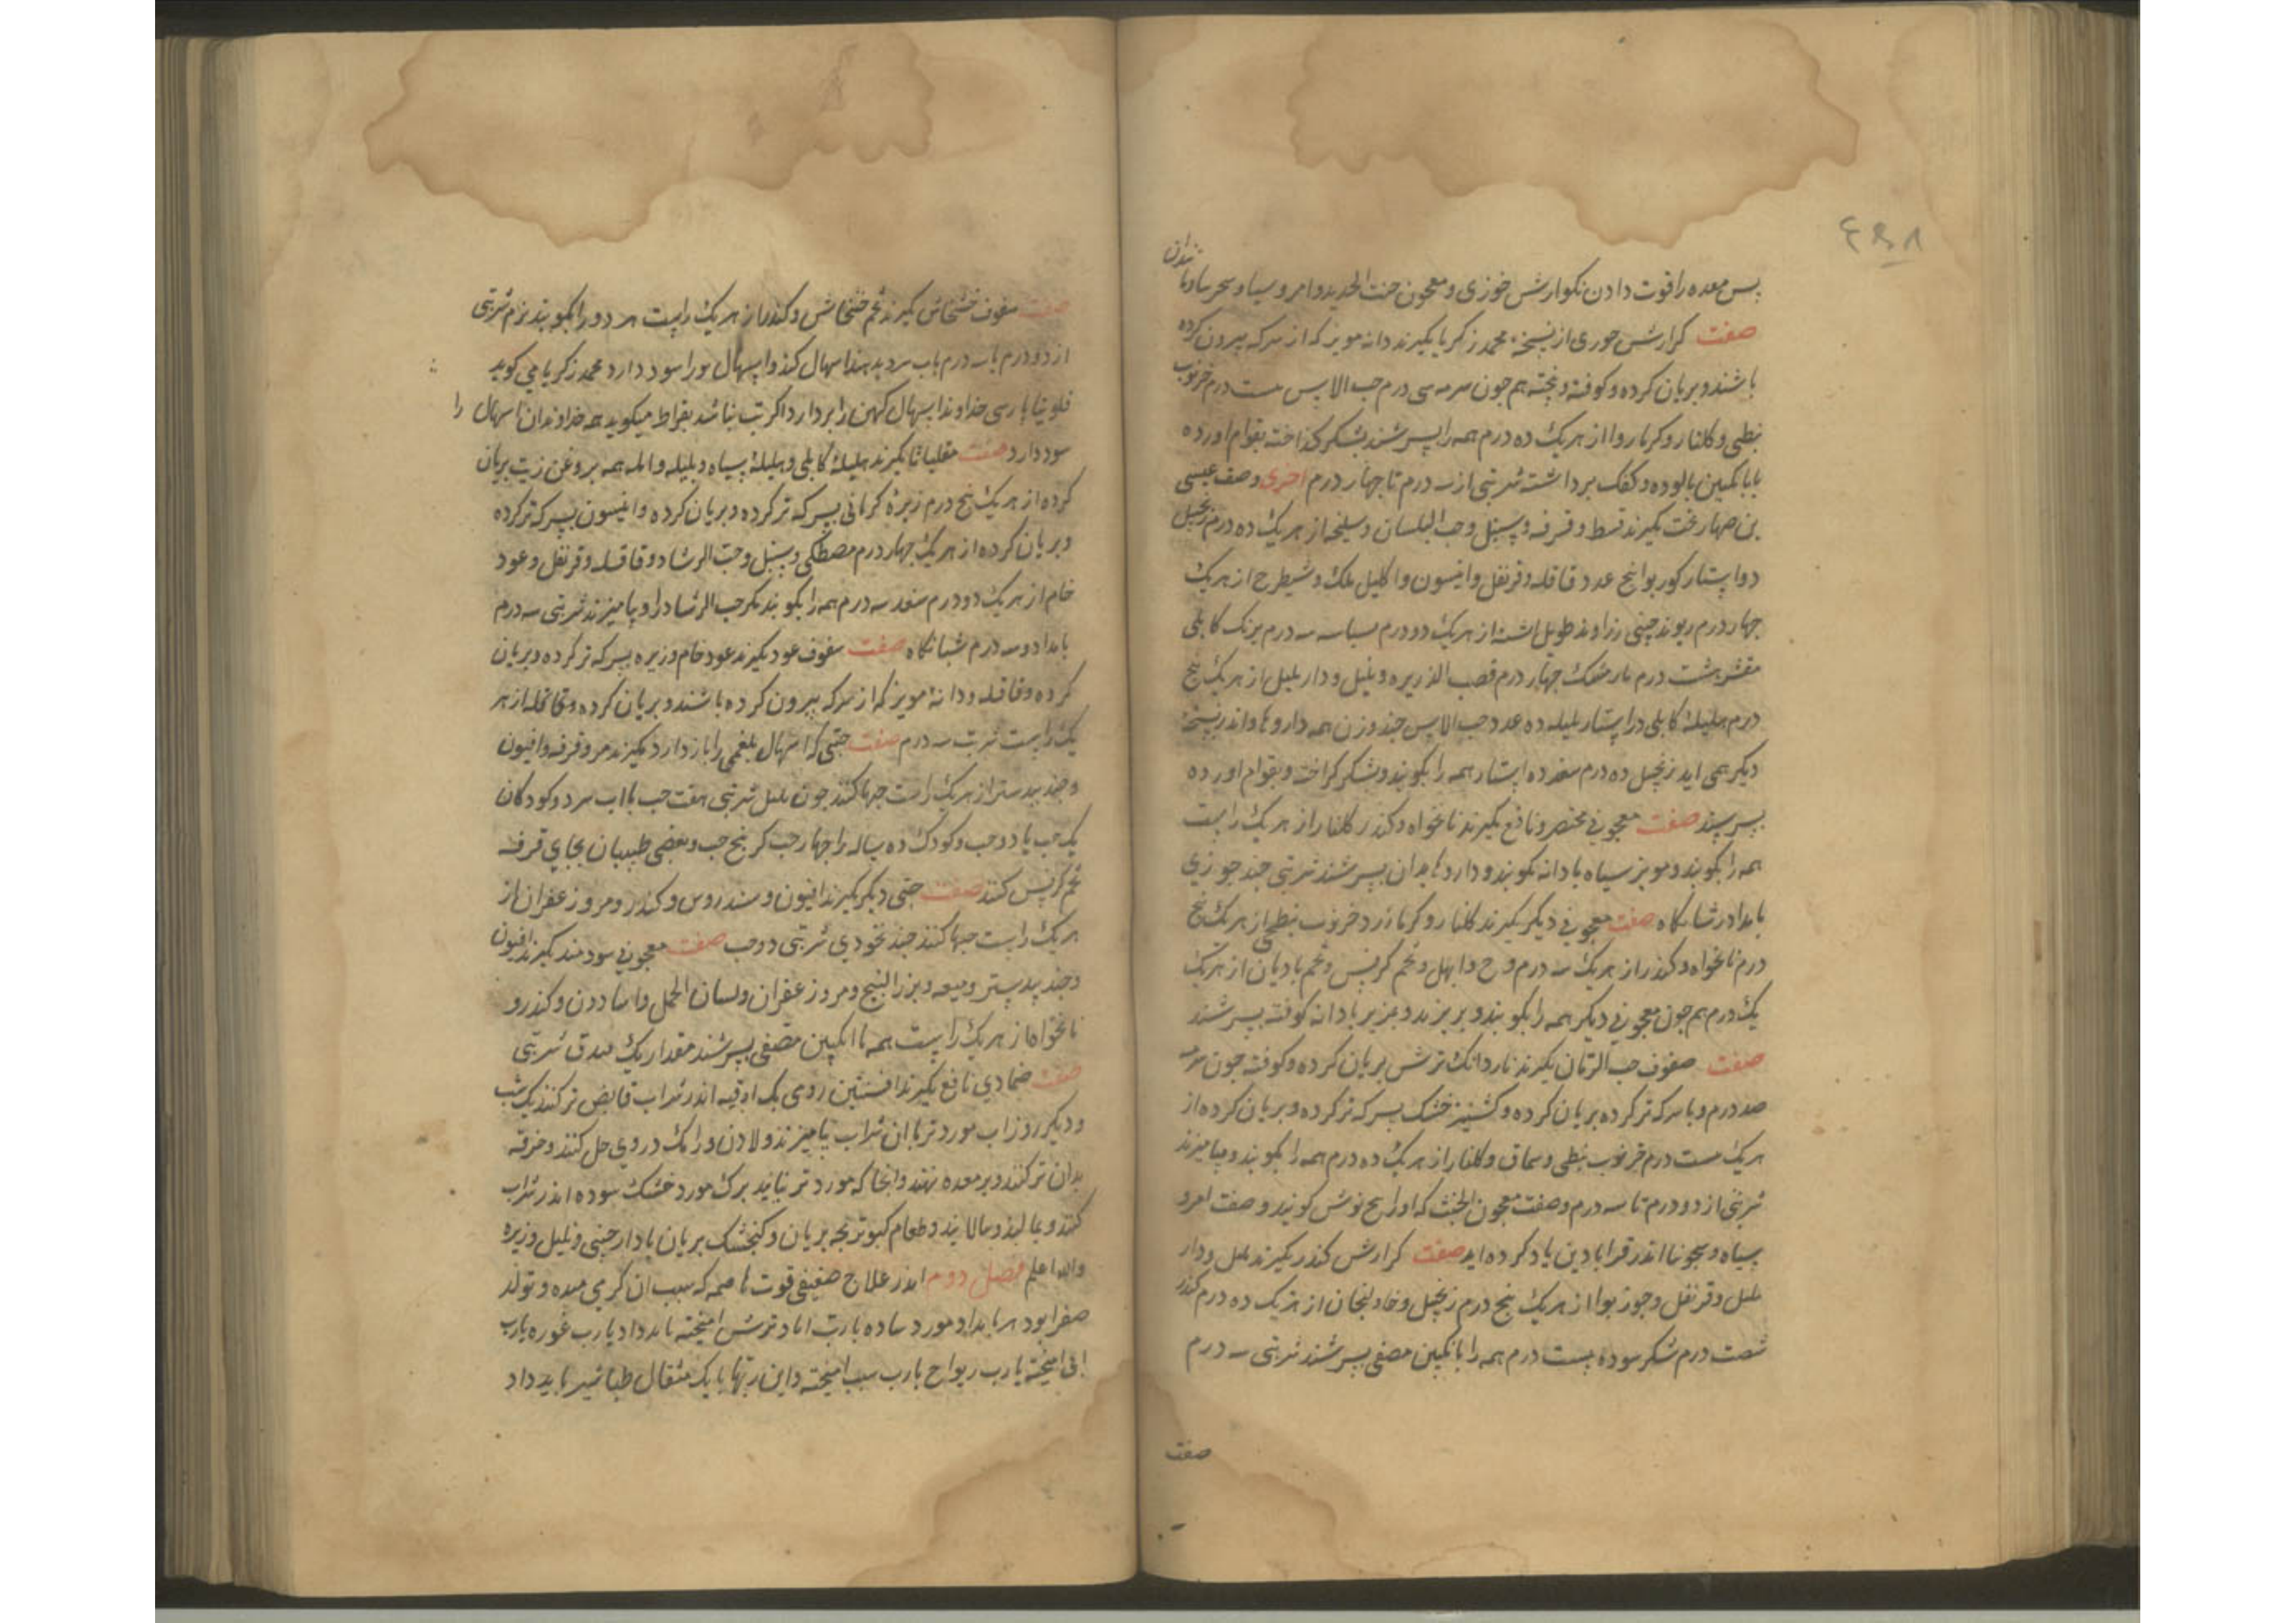 ۴۹۸
پس معده را قوت دادن بکوارش خوزی و معجون خبث الحدید و امروسیا و سجرینا و مانند آن
صفت کوارش خوزی از نسخه محمد زکریا بکیرند دانه مویز که از سرکه بیرون کرده
باشند و بریان کرده و کوفته و پخته هم جون سرمه سی درم حب الاس بیست درم خرنوب
نبطی و کلنار و کرمازوا از هر یک ده درم همه را بسرشند بشکر کداخته بقوام اورده
یا بانکبین پالوده و کفک برداشته شربتی از سه درم تا جهار درم اخری وصف عیسی
بن صهاربخت بکیرند قسط و قرفه و سنبل و حب البلسان و سلیخه از هر یک ده درم زنجبیل
دو استار کوزبوا پنج عدد قاقله و قرنفل و انیسون و اکلیل ملک و شیطرج از هر یک
جهار درم ریوند جینی زراوند طویل اشنه از هر یک دو درم بسباسه سه درم برنک کابلی
مقشر هشت درم نارمشک جهار درم قصب الذریره و پلپل و دارپلپل از هر یک پنج
درم هلیلۀ کابلی دو استار بلیله ده عدد حب الاس جند وزن همه داروها و اندر نسخۀ
دیکر همی اید زنجبیل ده درم سعد ده استار همه را بکوبند و بشکر کداخته و بقوام اورده
بسرشند صفت معجونی مختصر و نافع بکیرند نانخواه و کندر کلنار از هر یک راست
همه را بکوبند و مویز سیاه با دانه بکوبند و داروها بدان بسرشند شربتی جند جوزی
بامداد و شبانکاه صفت معجونی دیکر بکیرند کلنار و کرمازرد خرنوب نبطی از هر یک پنج
درم نانخواه و کندر از هر یک سه درم وج و ابهل و تخم کرفس و تخم بادیان از هر یک
یک درم هم جون معجونی دیکر همه را بکوبند و بپزند و مویز با دانه کوفته بسرشند
صفت صفوف حب الرمان بکیرند ناردانک ترش بریان کرده و کوفته جون سرمه
صد درم و با سرکه تر کرده بریان کرده و کشنیز خشک بسرکه تر کرده و بریان کرده از
هر یک بیست درم خرنوب نبطی و سماق و کلنار از هر یک ده درم همه را بکوبند و بیامیزند
شربتی از دو درم تا سه درم و صفت معجون الخبث که او را پنج نوش کویند و صفت امرو
سیاه و سجرنیا اندر قرابادین یاد کرده اید صفت کوارش کندر بکیرند پلپل و دار
پلپل و قرنفل و جوز بوا از هر یک پنج درم زنجبیل و خاولنجان از هر یک ده درم کندر
شصت درم شکر سوده بیست درم همه را بانکبین مصفی بسرشند شربتی سه درم
صفت
صفت سفوف خشخاش بکیرند تخم خشخاش و کندر از هر یک راست هر دو را بکوبند نرم شربتی
از دو درم تا سه درم باب سرد بدهند اسهال کند و اسهال مورا سود دارد محمد زکریا می کوید
فلونیا پارسی خداوند اسهال کهن را بردارد اکر تب نباشد بقراط میکوید همه خداوندان اسهال را
سود دارد صفت مقلیاثا بکیرند هلیلۀ کابلی و هلیلۀ سیاه و بلیله و امله همه بروغن زیت بریان
کرده از هر یک پنج درم زیرۀ کرمانی بسرکه تر کرده و بریان کرده و انیسون بسرکه تر کرده
و بریان کرده از هر یک جهار درم مصطکی و سنبل و حب الرشاد و قاقله و قرنفل و عود
خام از هر یک دو درم سعد سه درم همه را بکوبند مکر حب الرشاد را و بیامیزند شربتی سه درم
بامداد و سه درم شبانکاه صفت سفوف عود بکیرند عود خام و زیره بسرکه تر کرده و بریان
کرده و قاقله و دانۀ مویز که از سرکه بیرون کرده باشند و بریان کرده و قاقله از هر
یک راست شربت سه درم صفت حبی که اسهال بلغمی را باز دارد بکیرند مر و قرفه و افیون
و جند بیدستر از هر یک راست حبها کنند جون پلپل شربتی هفت حب با اب سرد و کودکان
یک حب یا دو حب و کودک ده ساله را جهار حب کر پنج حب و بعضی طبیبان بجای قرفه
تخم کرفس کنند صفت حبی دیکر بکیرند افیون و سندروس و کندر و مر و زعفران از
هر یک راست حبها کنند جند نخودی شربتی دو حب صفت معجونی سودمند بکیرند افیون
و جند بیدستر و میعه و بزر البنج و مر و زعفران و لسان الحمل و اسارون و کندر و
نانخواه از هر یک راست همه با انکبین مصفی بسرشند مقدار یک بندق شربتی
صفت ضمادی نافع بکیرند افسنتین رومی یک اوقیه اندر شراب قابض تر کنند یک شب
و دیکر روز اب مورد تر با ان شراب بیامیزند و لادن و رامک در وی حل کنند و خرقه
بدان تر کنند و بر معده نهند و انجا که مورد تر نیابند برک مورد خشک سوده اندر شراب
کنند و بمالند و بپالایند و طعام کبوتر بجه بریان و کنجشک بریان با دارجینی و پلپل و زیره
والله اعلم فصل دوم اندر علاج ضعیفی قوت هاضمه که سبب ان کرمی معده و تولد
صفرا بود هر بامداد مورد ساده یا رب انار ترش امیخته باید داد یا رب غوره یا رب
ابی امیخته یا رب ریواج یا رب سیب امیخته و این ربها با یک مثقال طباشیر باید داد